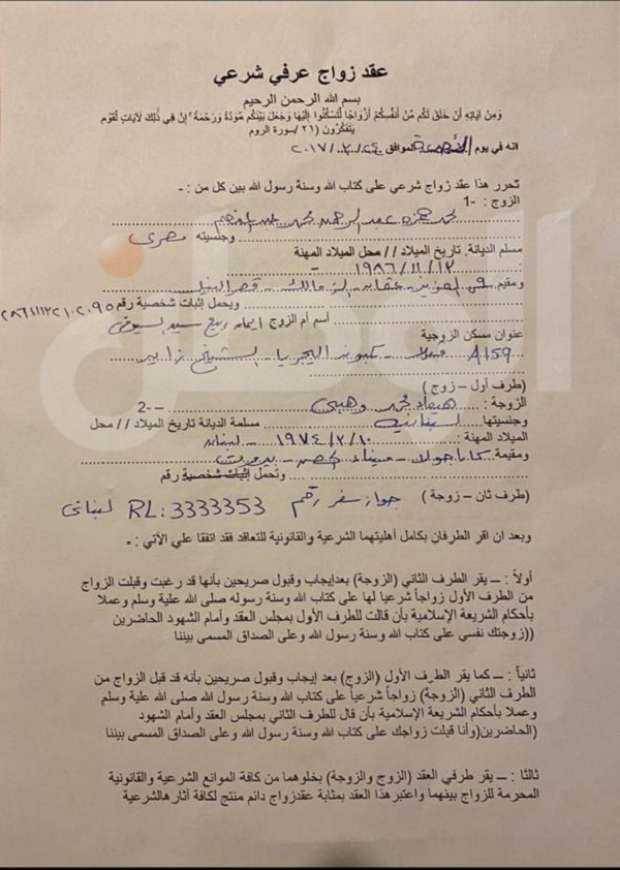 عقد زواج عرفي شرعي
بسم الله الرحمن الرحيم
وَمِنْ آيَاتِهِ أَنْ خَلَقَ لَكُم مِّنْ أَنفُسِكُمْ أَزْوَاجًا لِّتَسْكُنُوا إِلَيْهَا وَجَعَلَ بَيْنَكُم مَّوَدَّةً وَرَحْمَةً ۚ إِنَّ فِي ذَٰلِكَ لَآيَاتٍ لِّقَوْمٍ
يَتَفَكَّرُونَ (٢١/سورة الروم
انه في يوم الموافق ٢٠١٧/٢/٢٤
تحرر هذا عقد زواج شرعي على كتاب الله وسنة رسول الله بين كل من : -
الزوج : -1
محمد حمزه عبد الرحمن محمد
وجنسيته مصرى
مسلم الديانة. تاريخ الميلاد // محل الميلاد المهنة
١٩٨٦/١١/١٢
ومقيم الزمالك - قصر النيل
ويحمل إثبات شخصية رقم ٢٨٦١١١٢٢١٠٢٠٩٥
أسم أم الزوج ايمان ربيع سيد
عنوان مسكن الزوجية
A159 - الشيخ زايد
(طرف أول – زوج )
الزوجة : هيفاء محمد وهبى – -2
وجنسيتها لبنانية مسلمة الديانة تاريخ الميلاد // محل
الميلاد المهنة : ١٩٧٤/٢/١٠ - لبنان
ومقيمة - ميناء الحصن - بيروت
وتحمل إثبات شخصية رقم
(طرف ثان – زوجة ) جواز سفر رقم RL:3333353 لبنانى
وبعد ان اقر الطرفان بكامل أهليتهما الشرعية والقانونية للتعاقد فقد اتفقا علي الآتي : -
أولاً : ــ يقر الطرف الثاني (الزوجة) بعدإيجاب وقبول صريحين بأنها قد رغبت وقبلت الزواج
من الطرف الأول زواجاً شرعيا لها على كتاب الله وسنة رسوله صلى الله علية وسلم وعملا
بأحكام الشريعة الإسلامية بأن قالت للطرف الأول بمجلس العقد وأمام الشهود الحاضرين
((زوجتك نفسي على كتاب الله وسنة رسول الله وعلى الصداق المسمى بيننا
ثانياً : ــ كما يقر الطرف الأول (الزوج) بعد إيجاب وقبول صريحين بأنه قد قبل الزواج من
الطرف الثاني (الزوجة) زواجاً شرعياً على كتاب الله وسنة رسول الله صلى الله علية وسلم
وعملا بأحكام الشريعة الإسلامية بأن قال للطرف الثاني بمجلس العقد وأمام الشهود
(الحاضرين(وأنا قبلت زواجك على كتاب الله وسنة رسول الله وعلى الصداق المسمى بيننا
ثالثا : ــ يقر طرفي العقد (الزوج والزوجة) بخلوهما من كافة الموانع الشرعية والقانونية
المحرمة للزواج بينهما واعتبرهذا العقد بمثابة عقدزواج دائم منتج لكافة أثارهالشرعية
الوطن